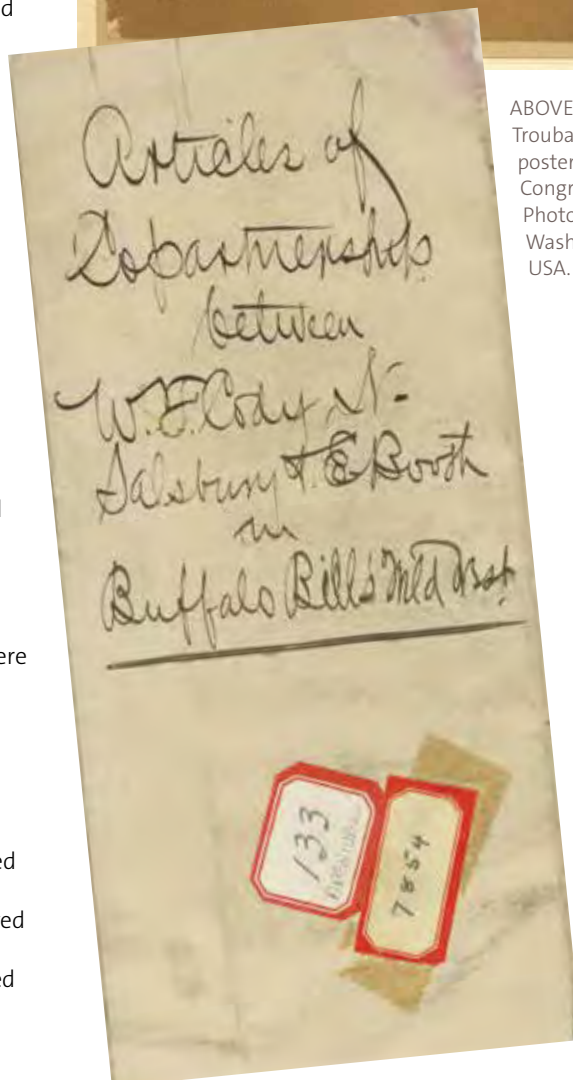 ed
ABOVE
Trouba
poster
Congr
Photo
Wash
USA.
Articles of
Copartnership
between
W.F. Cody N-
Salsbury & E Booth
in
Buffalo Bill's Wild West
ere
ed
ed
ed
133
7854